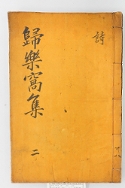 詩
歸樂窩集
二